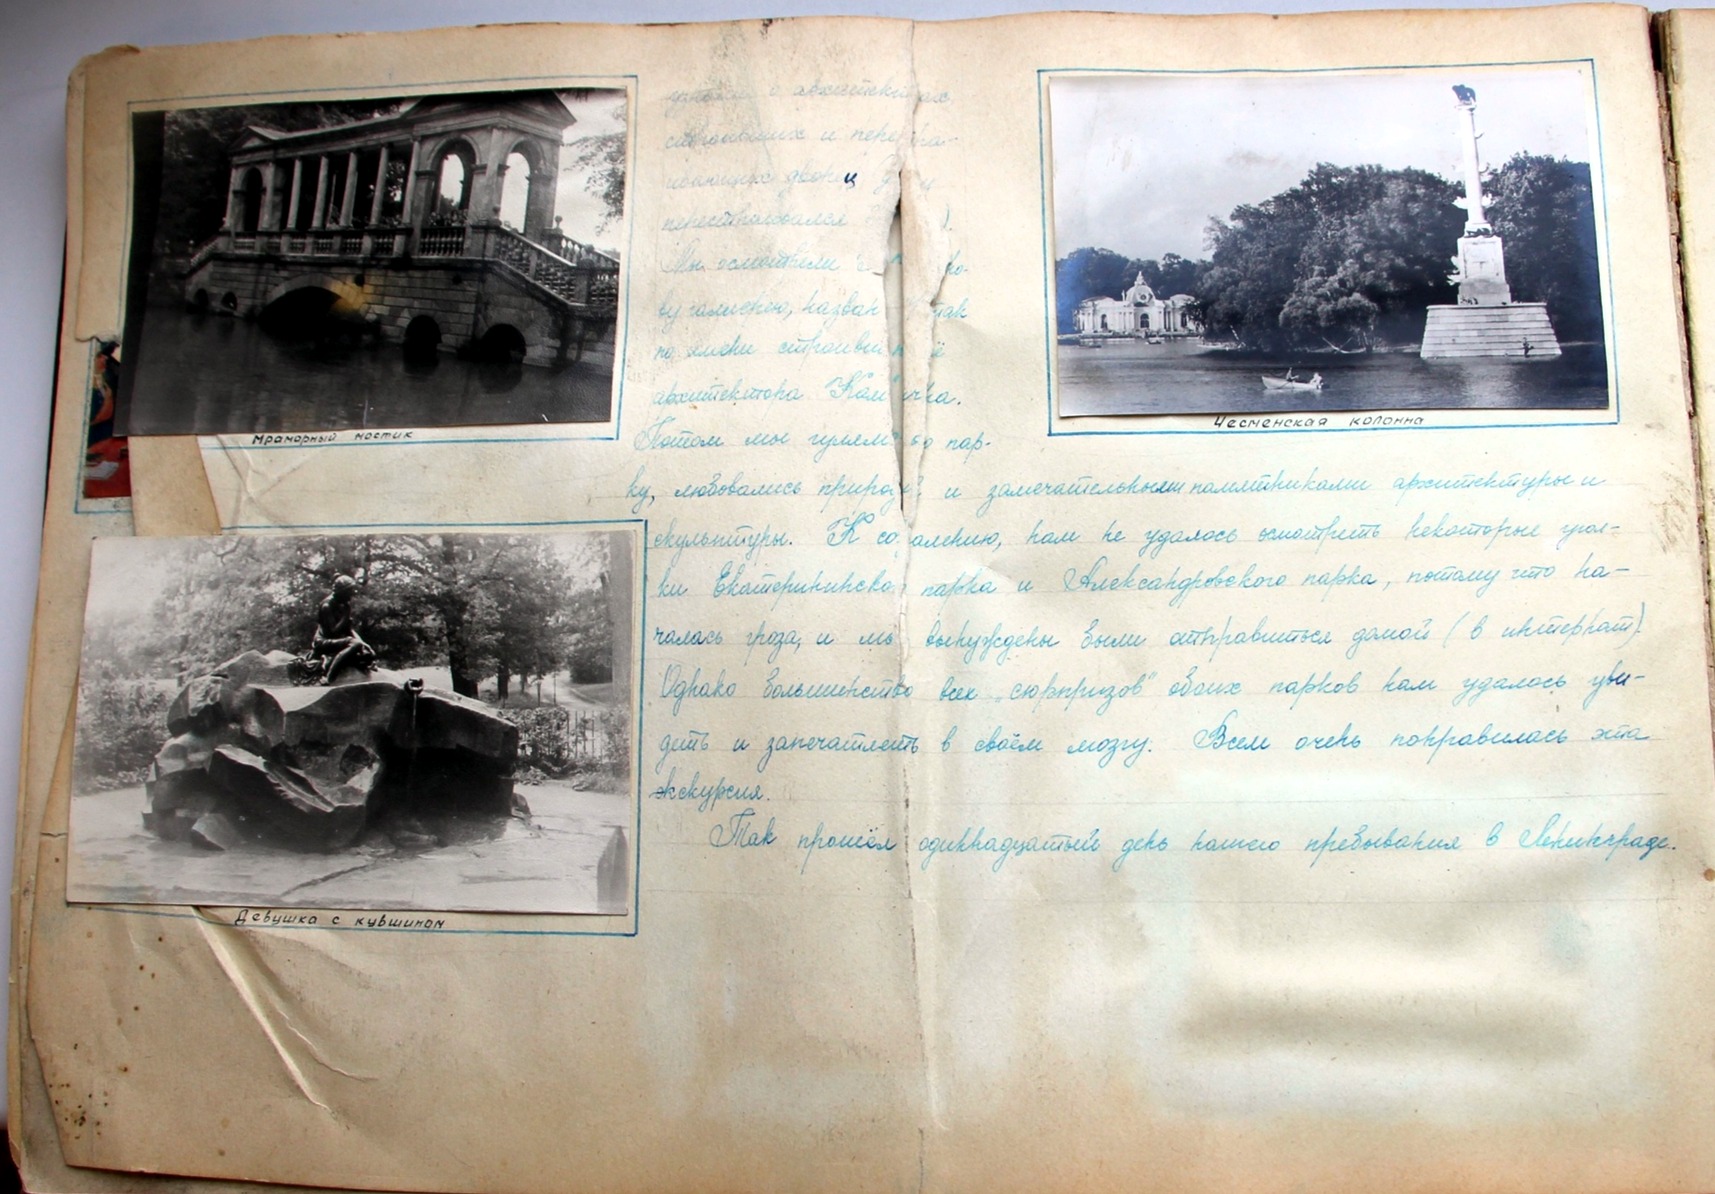 Мраморный мостик
Чесменская колонна
Девушка с кувшином
узнали о архитекторах
строивших и
дворец
перестраивался
Мы осмотрели
ву галерею, назван так
по имени строивш её
архитектора Камерона.
Потом мы гуляли по пар-
ку, любовались природой и замечательными памятниками архитектуры и
скульптуры. К сожалению, нам не удалось осмотреть некоторые угол-
ки Екатерининского парка и Александровского парка, потому что на-
чалась гроза, и мы вынуждены были отправиться домой (в интернат).
Однако большинство всех „сюрпризов" обоих парков нам удалось уви-
деть и запечатлеть в своём мозгу. Всем очень понравилась эта
экскурсия.
Так прошёл одиннадцатый день нашего пребывания в Ленинграде.